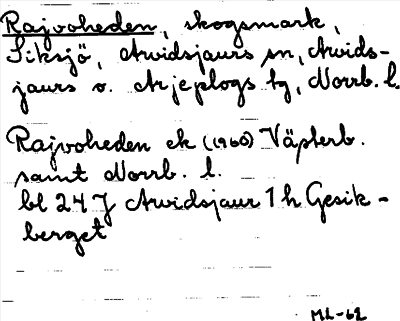 Rajvoheden, skogsmark,
Siksjö, Arvidsjaurs sn, Arvids-
jaurs o. Arjeplogs tg, Norrb. l.
Rajvoheden ek (1960) Västerb.
samt Norrb. l.
bl 24 J Arvidsjaur 1 h Gesik-
berget
ML-62